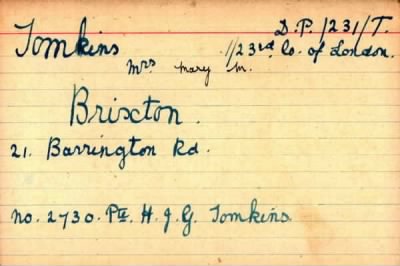 Tomkins D.P./231/T.
1/23rd Co. of London.
Mrs Mary M.
Brixton.
21. Barrington Rd.
No. 2730. Pte. H. J. G. Tomkins